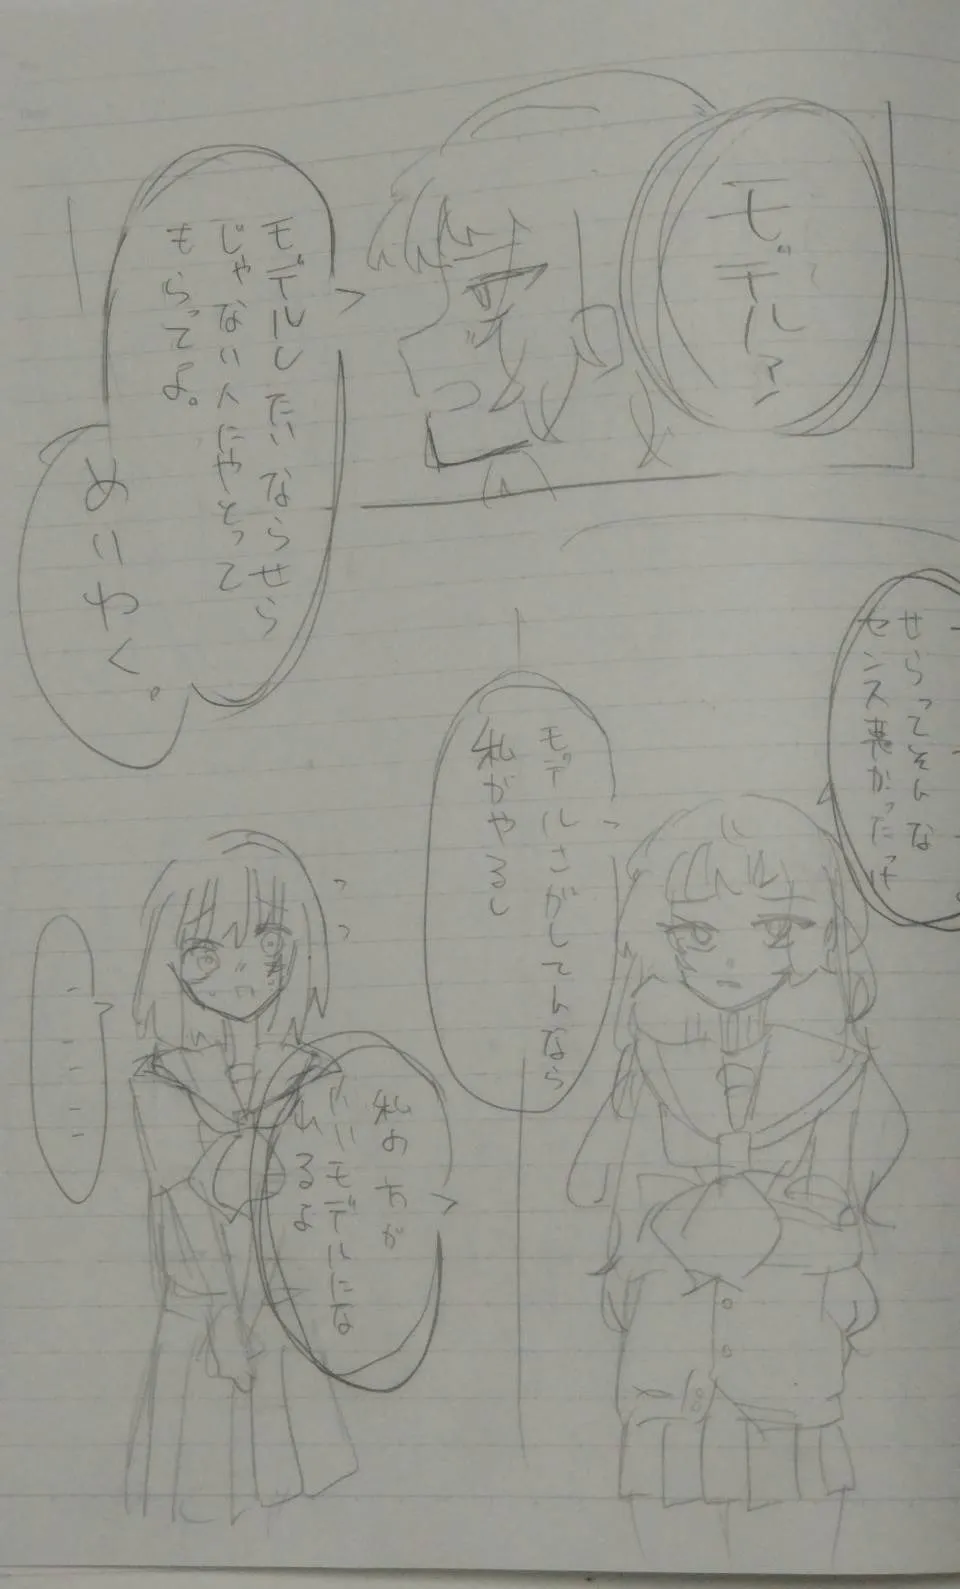 モデルゥ
モデルしたいならせら
じゃない人にやとって
もらってよ。
めいわく。
せらってそんな
センス悪かったっけ
モデルさがしてんなら
私がやるし
私の方が
いいモデルにな
れるよ